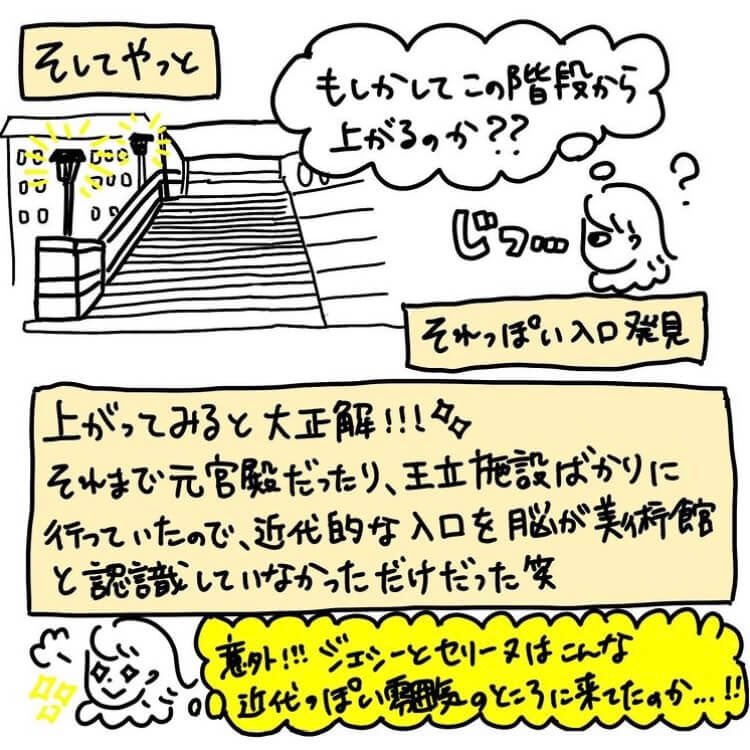 そしてやっと
もしかしてこの階段から
上がるのか??
?
じっ…
それっぽい入口発見
上がってみると大正解!!!
それまで元宮殿だったり、王立施設ばかりに
行っていたので、近代的な入口を脳が美術館
と認識していなかっただけだった笑
意外!!! ジェシーとセリーヌはこんな
近代っぽい雰囲気のところに来てたのか...!!